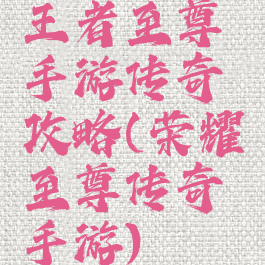 王者至尊
手游传奇
攻略(荣耀
至尊传奇
手游)